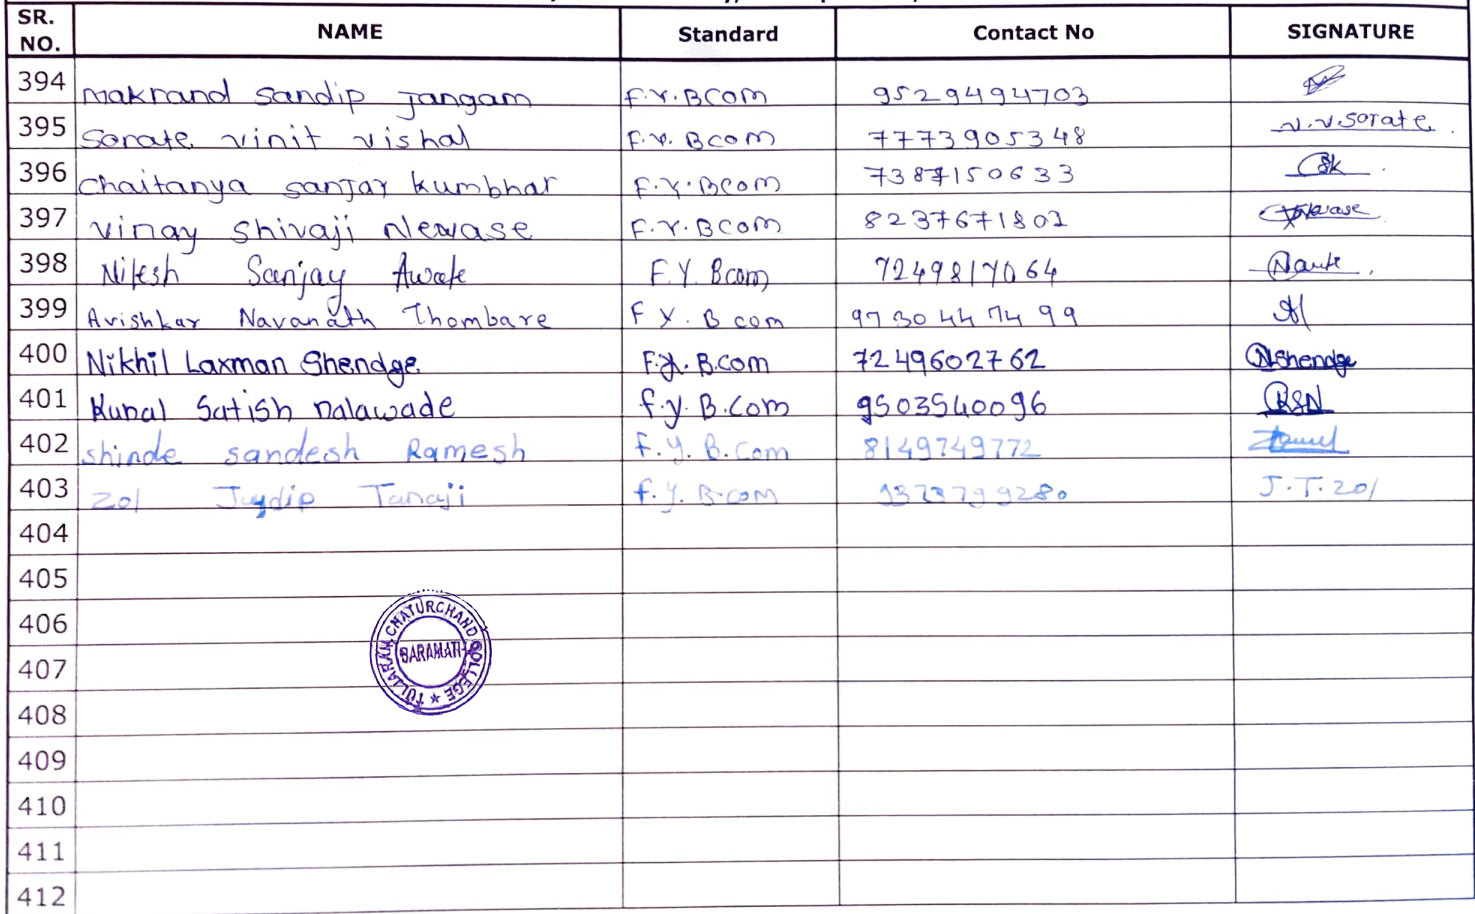 SR. NO. NAME Standard Contact No SIGNATURE
394 Makrand Sandip Jangam F.Y.BCOM 9529494703
395 Sorate vinit vishal F.Y. BCOM 7773905348 v.v.sorate
396 Chaitanya sanjay kumbhar F.Y.BCOM 7387150633
397 vinay shivaji Newase F.Y.BCOM 8237671801
398 Nitesh Sanjay Awate F.Y. Bcom 7249817064
399 Avishkar Navanath Thombare F Y. B com 9730447499
400 Nikhil Laxman Shendge F.Y. B.com 7249602762 NShendge
401 Kunal Satish nalawade f.y. B.Com 9503540096 KSN
402 shinde sandesh Ramesh f.y. B.Com 8149749772
403 Zol Jaydip Tanaji f.y. B.com J.T.Zol
404
405
406
TULJARAM CHATURCHAND COLLEGE
BARAMATI
407
408
409
410
411
412